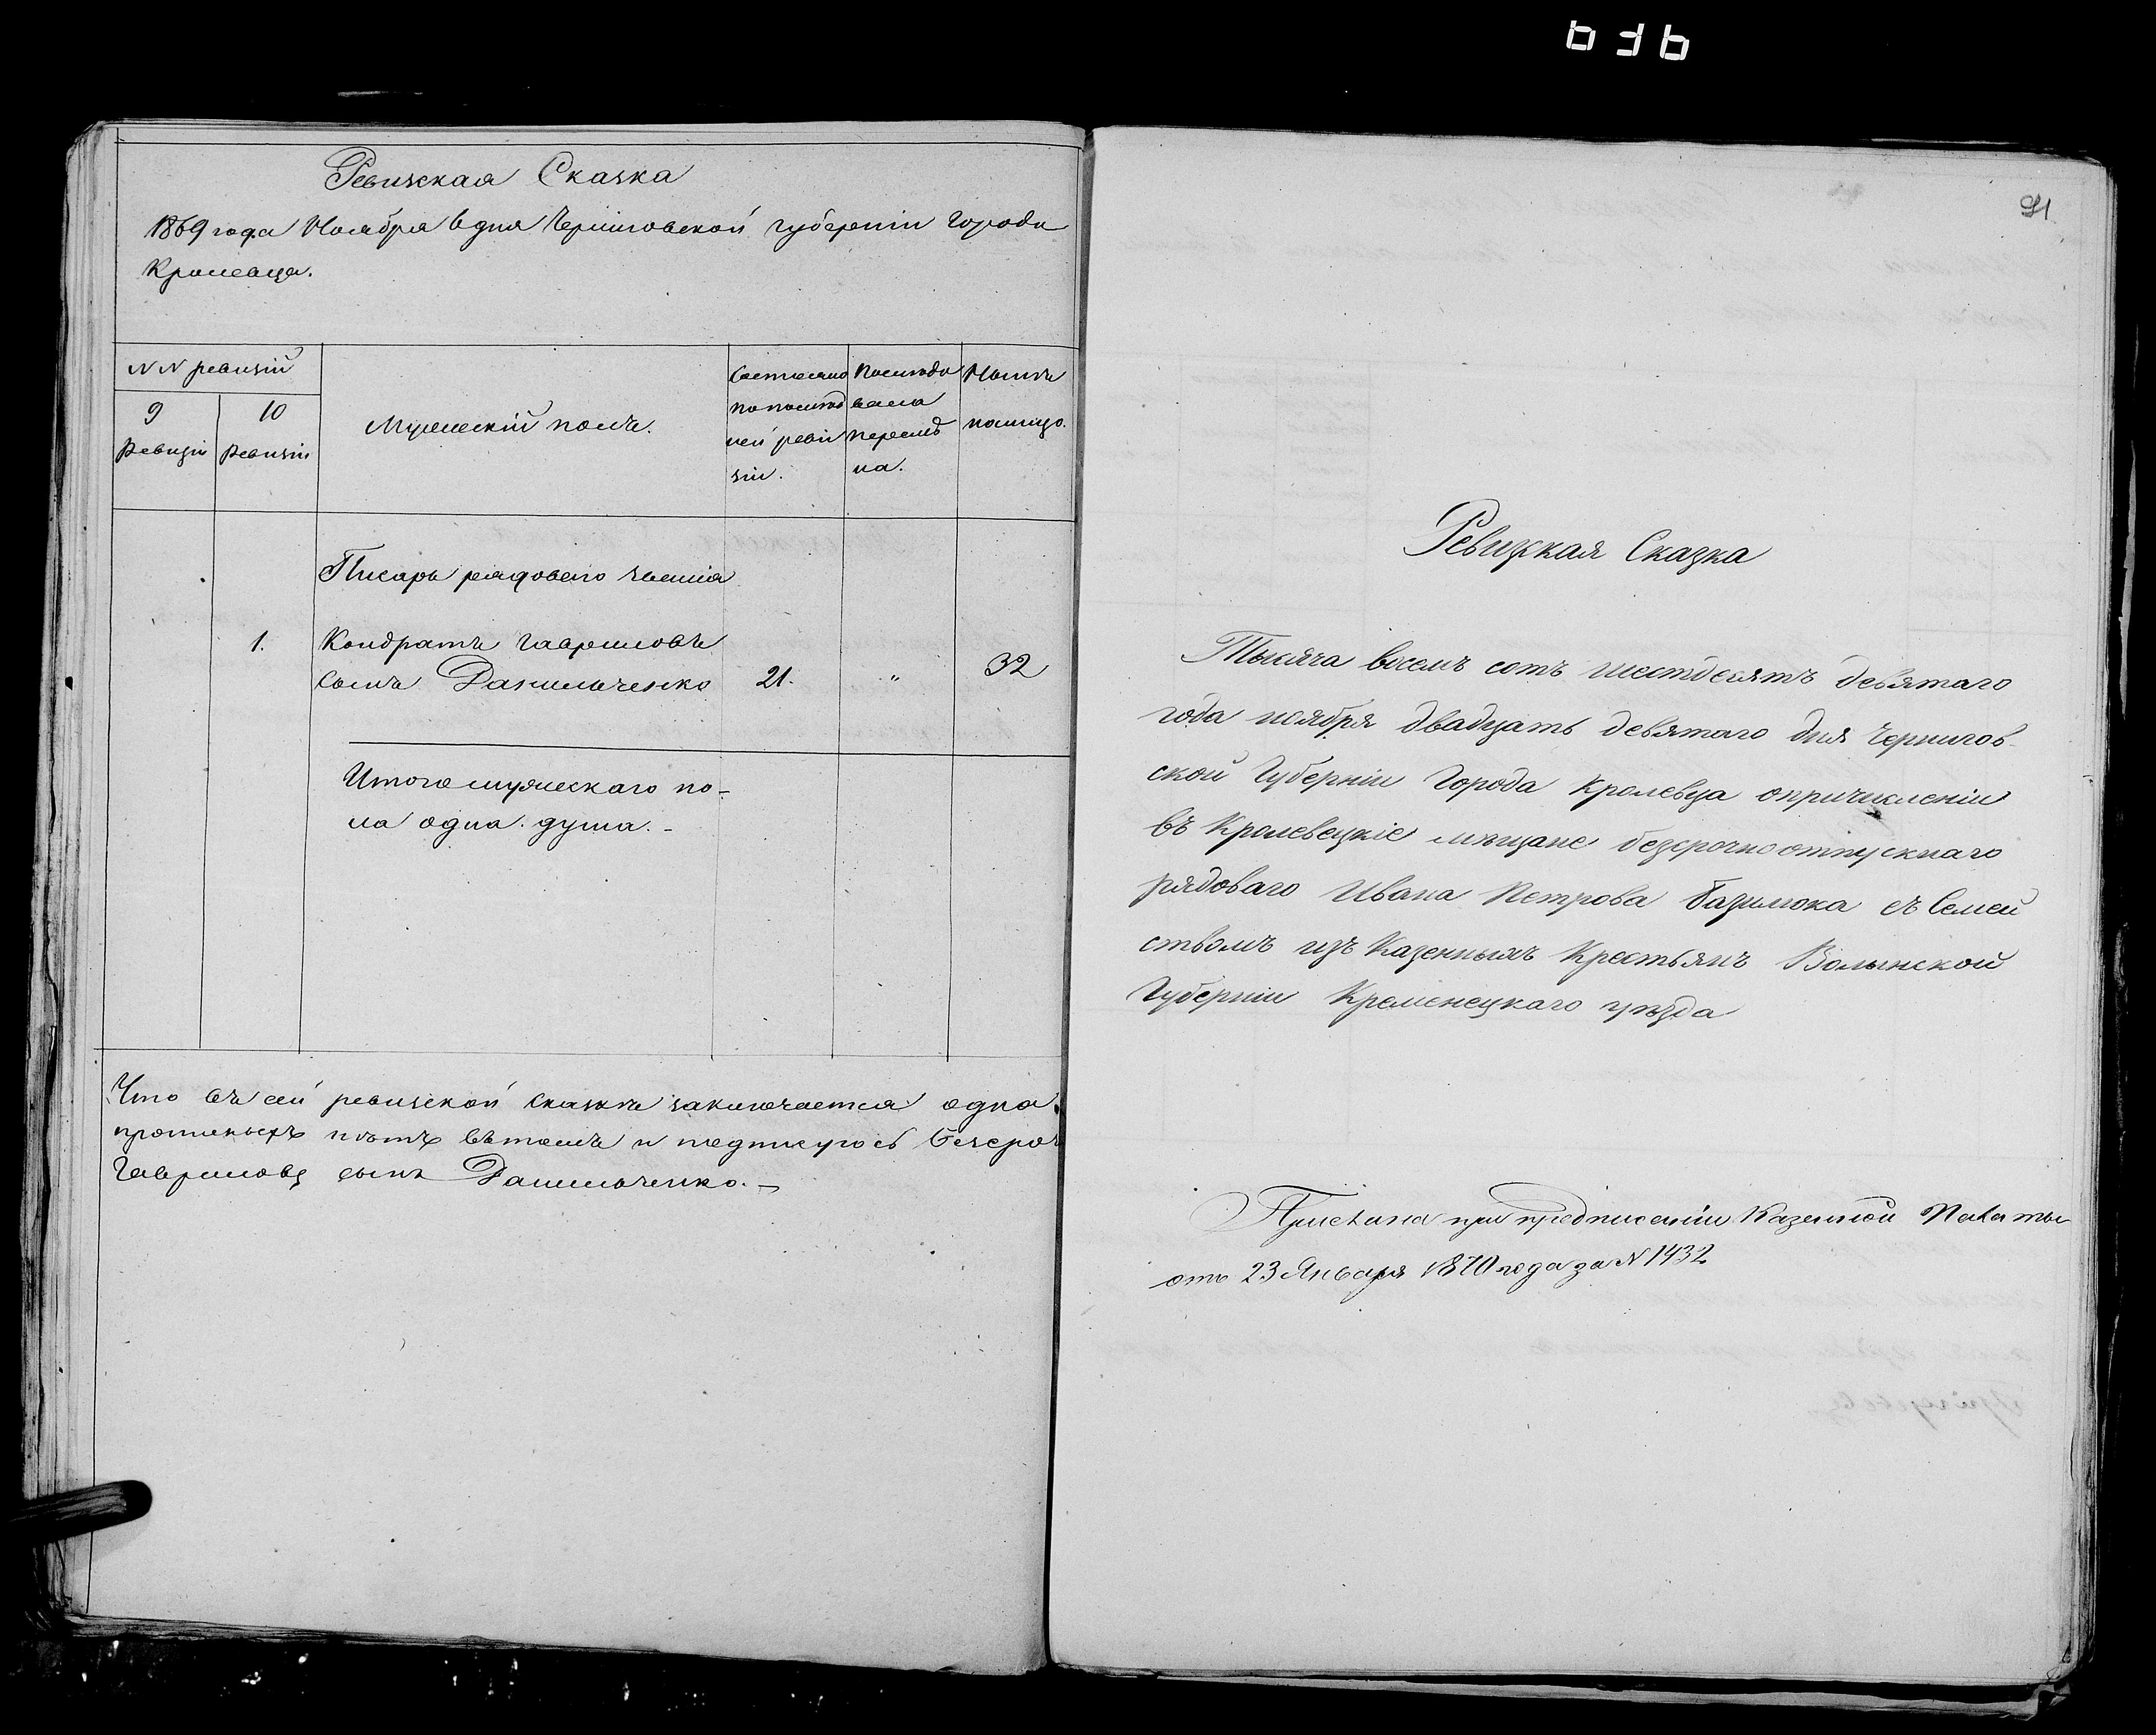 Ревизская Сказка
1869 года Ноября 6 дня Черниговской губерніи города
Кролевца.
NN ревизій
9 Ревизіи
10 Ревизіи
Мужескій полъ.
Состояло
по послѣд
ней реви
зіи.
Послѣдо
вала
перемѣ
на.
Нынѣ
налицо.
Писарь рядоваго званія
1. Кондратъ Гавриловъ
сынъ Данильченко 21. " 32
Итого мужескаго по-
ла одна душа. -
Что въ сей ревизской сказкѣ заключается одна
прописныхъ нѣтъ вътомъ и подпишусь безсроч
Гавриловъ сынъ Данильченко. -
91
Ревизкая Сказка
Тысяча восемъ сотъ шестдесятъ девятаго
года ноября двадцать девятаго дня Чернигов-
ской Губерніи Города Кролевца опричисленіи
въ Кролевецкіе мѣщане безсрочноотпускнаго
рядоваго Ивана Петрова Базилюка съ Семей
ствомъ изъ Казенныхъ Крестьянъ Волынской
Губерніи Кременецкаго уѣзда
Прислана при предписаніи Казенной Палаты
отъ 23 Января 1870 года за N 1432